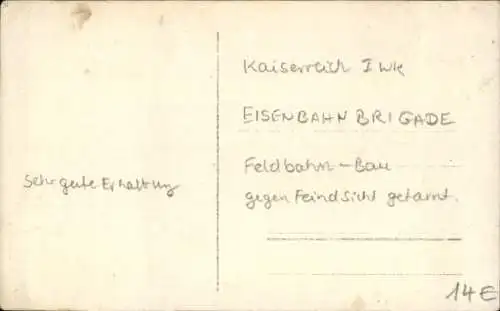 Kaiserreich I WK
EISENBAHNBRIGADE
Feldbahn-Bau
gegen Feindsicht getarnt.
Sehr gute Erhaltung
14€